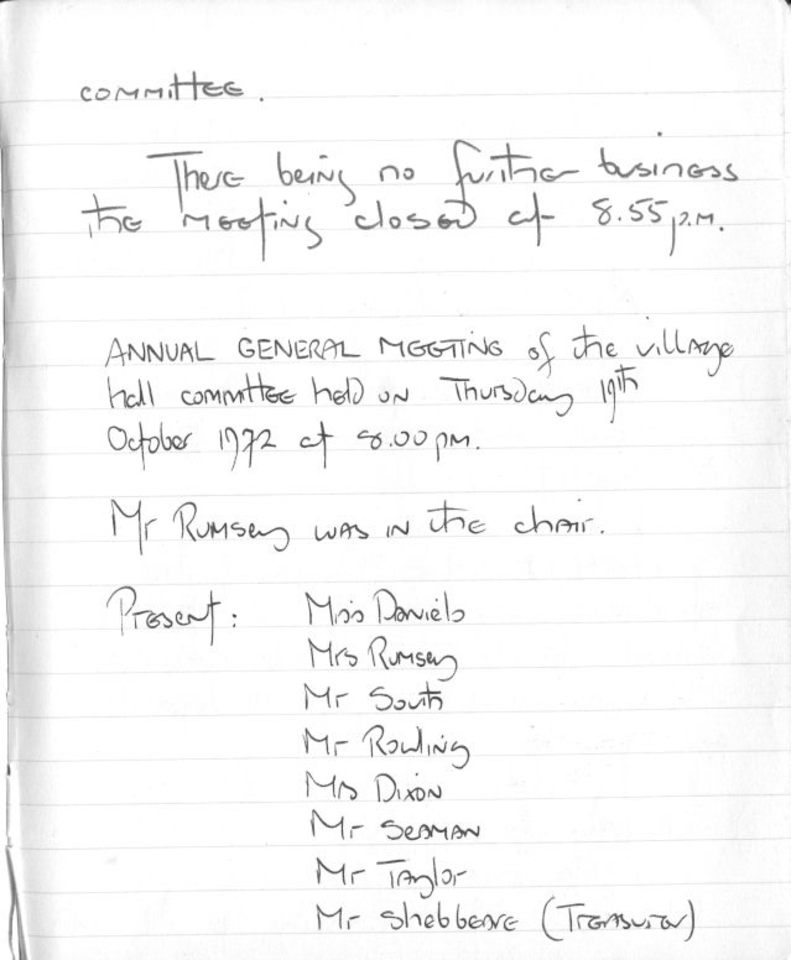 committee.
There being no further business
the meeting closed at 8.55 p.m.
ANNUAL GENERAL MEETING of the village
hall committee held on Thursday 19th
October 1972 at 8.00 pm.
Mr Rumsey was in the chair.
Present: Miss Daniels
Mrs Rumsey
Mr South
Mr Rowling
Mrs Dixon
Mr Seaman
Mr Taylor
Mr Shebbeare (Treasurer)